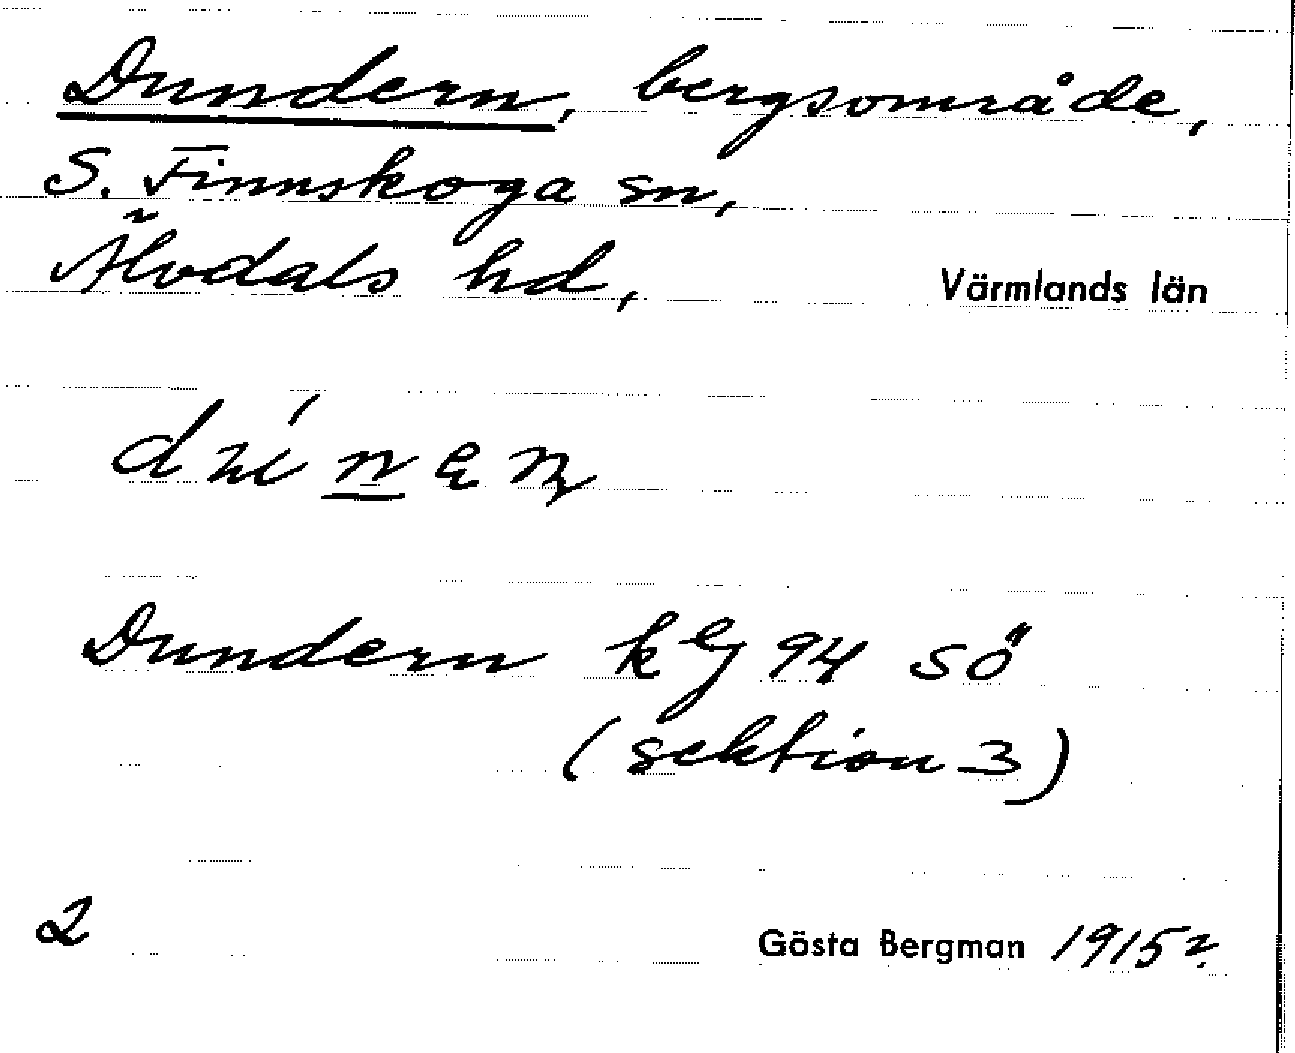 Dundern, bergsområde,
S. Finnskoga sn,
Älvdals hd, Värmlands län
Dundern k eg 94 SÖ
(sektion 3)
2 Gösta Bergman 1915